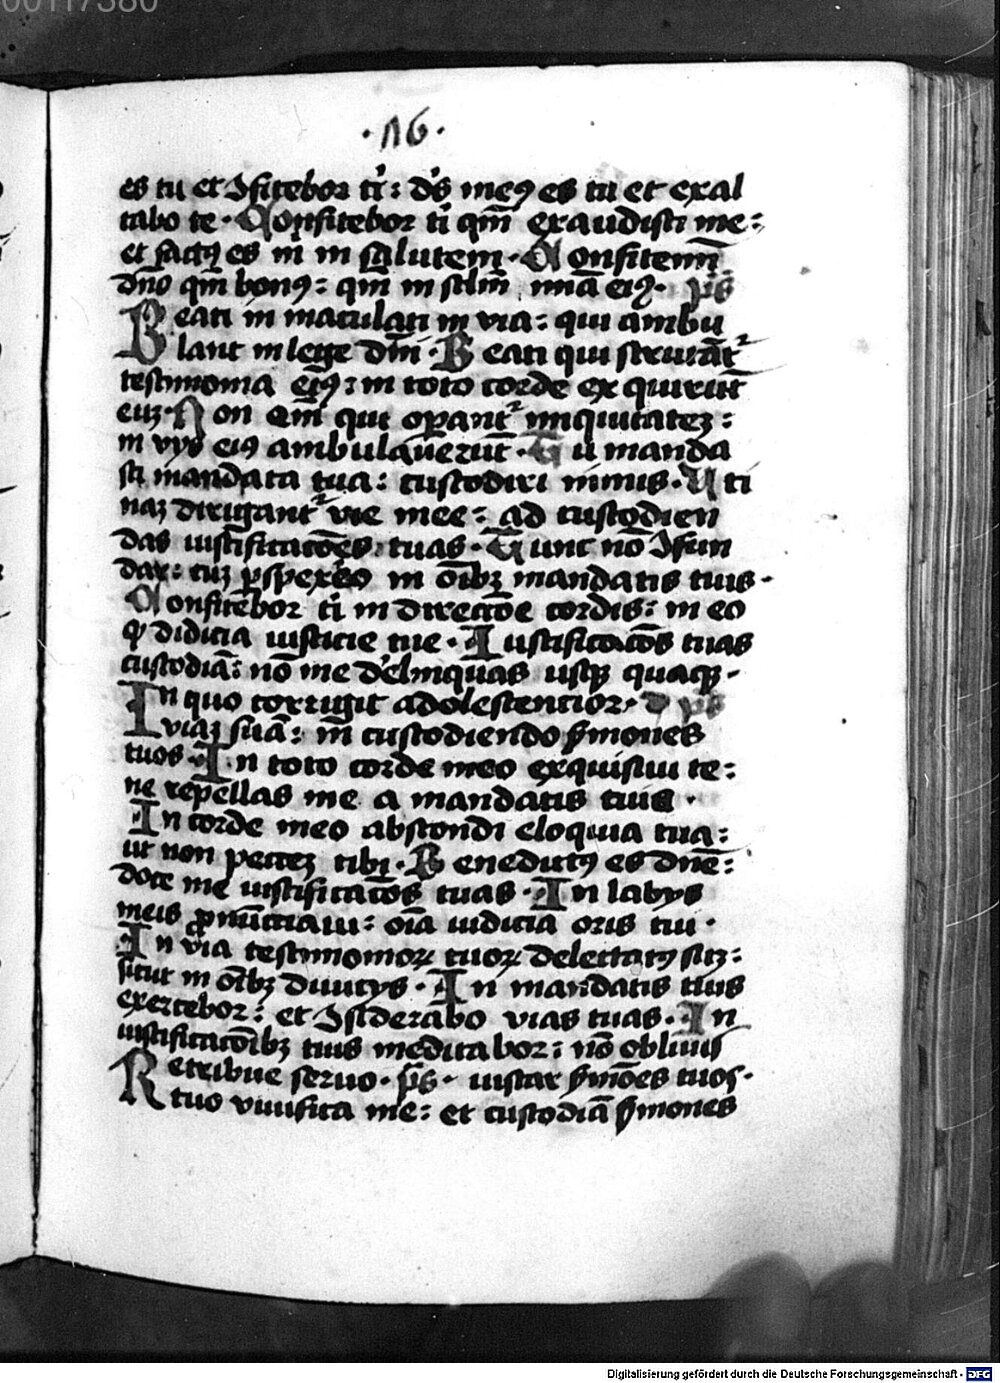 00117380
·16·
es tu et Ɔfitebor ti: ds̄ meꝰ es tu et exal
tabo te· Confitebor ti qm̄ exaudisti me:
et factꝰ es m̄ in salutem· Confitemī
dn̄o qm̄ bonꝰ: qm̄ in sclm̄ mīa eiꝰ· ps̄
Beati in maculati in via: qui ambu
lant in lege dm̄i· Beati qui scrutāt᷑
testimonia eiꝰ: in toto corde ex quirūt
euʒ· Non em̄ qui opant᷑ iniquitateʒ:
in vys eiꝰ ambulauerūt· Tu manda
sti mandata tua: custodiri nimis· Uti
naʒ dirigant᷑ vie mee: ad custodien
das iustificatōes tuas· Tunc nō Ɔfun
dar: cuʒ pspexero in oībʒ mandatis tuis·
Confitebor ti in directōe cordis: in eo
ꝙ didicia iusticie tue· Iustificatōs tuas
custodiā: nō me d'elinquas usqꝫ quaqꝫ·
In quo corrigit adolescentior· ps̄
viaʒ suā: in custodiendo s̄mones
tuos· In toto corde meo exquisiui te:
ne repellas me a mandatis tuis·
In corde meo abscondi eloquia tua:
ut non pecceʒ tibi· Benedictꝰ es dn̄e:
doce me iustificatōs tuas· In labys
meis ꝓnūctiaui: oīa iudicia oris tui·
In via testimonioꝝ tuoꝝ delectatꝰ sū:
sicut in oībʒ diuicys· In mandatis tuis
exercebor: et Ɔsiderabo vias tuas· In
iustificatōībʒ tuis meditabor: nō obliuis
Retribue seruo· ps̄· iustar s̄mōes tuos·
tuo viuifica me: et custodiā s̄mones
Digitalisierung gefördert durch die Deutsche Forschungsgemeinschaft - DFG